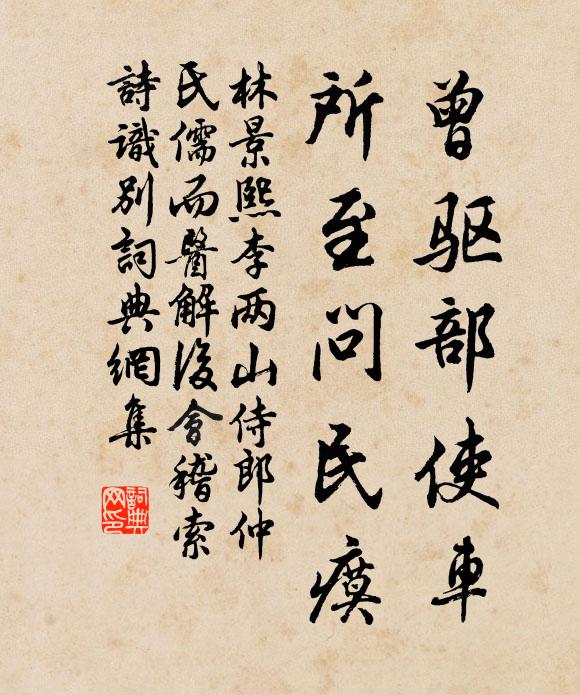 曾驱部使車
所至問民瘼
林景熙李两山侍郎仲
氏儒而醫解後會稽索
詩識别詞典網集
詞典
网印